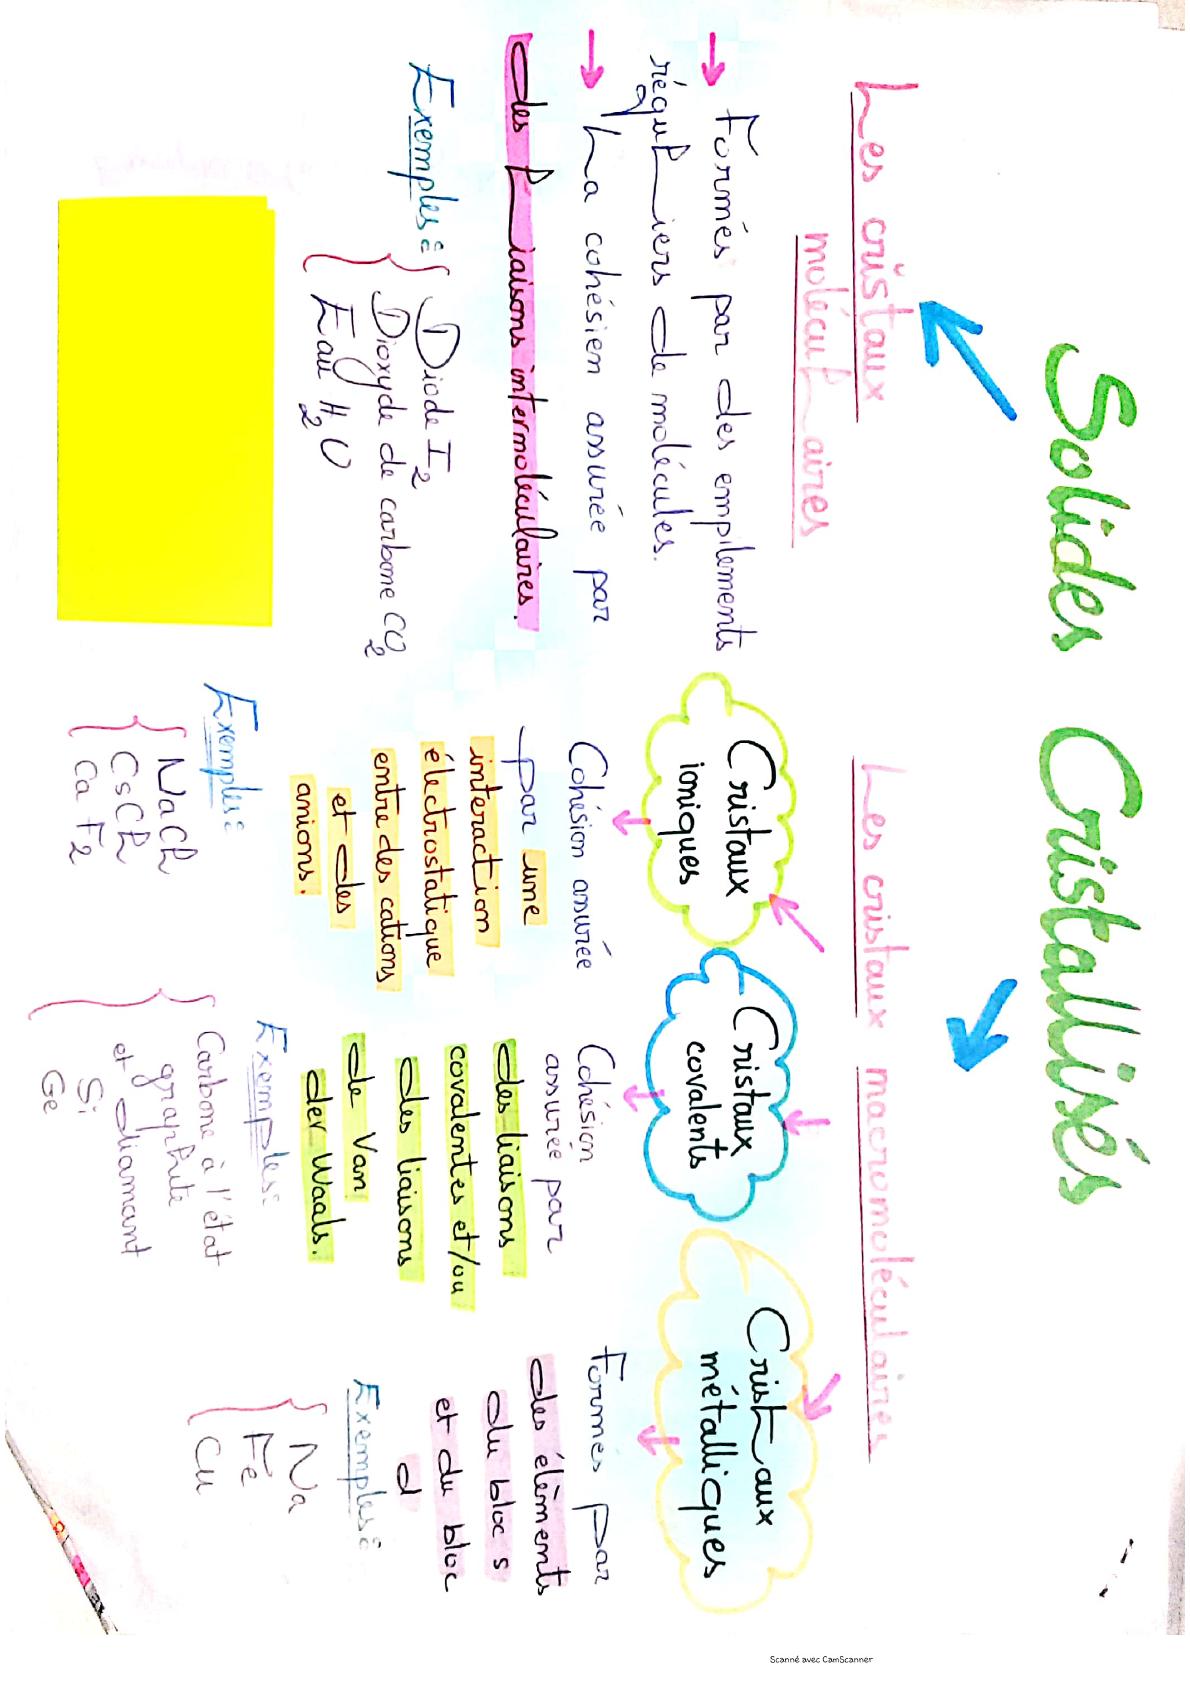 Solides Cristallisés
Les cristaux
moléculaires
→ Formés par des empilements
réguliers de molécules.
→ La cohésion assurée par
des liaisons intermoléculaires.
Exemples:
Diode I2
Dioxyde de carbone CO2
Eau H2O
Les cristaux macromoléculaires
Cristaux
ioniques
Cohésion assurée
par une
interaction
électrostatique
entre des cations
et des
anions.
Exemples:
NaCl
CsCl
CaF2
Cristaux
covalents
Cohésion
assurée par
des liaisons
covalentes et/ou
des liaisons
de Van
der Waals.
Exemples:
Carbone à l'état
graphite
et diamant
Si
Ge
Cristaux
métalliques
Formés par
des éléments
du bloc s
et du bloc
d
Exemples:
Na
Fe
Cu
Scanné avec CamScanner